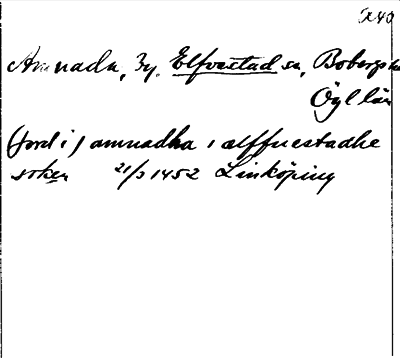 Amnada, By. Elfvestad sn, Bobergs h
Ögl län
(jord i) amnadha iælffuestadhe
soken 21/3 1452 Linköping